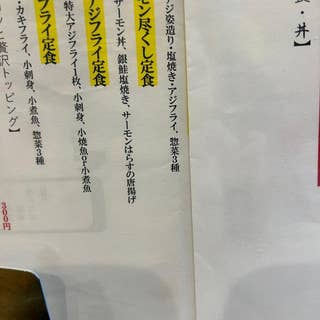 食・丼】
アジ姿造り・塩焼き・アジフライ、惣菜3種
モン尽くし定食
サーモン丼、銀鮭塩焼き、サーモンはらすの唐揚げ
アジフライ定食
特大アジフライ1枚、小刺身、小焼魚or小煮魚
フライ定食
・カキフライ、小刺身、小煮魚、惣菜3種
ッと贅沢トッピング】
300円